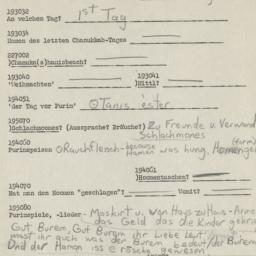 193032
An welchen Tag? 1st Tag
193034
Namen des letzten Chanukkah-Tages
227002
)Chanuka(s)hauisbesch?
193040 193041
'Weihnachten' )Nittl?
194051
'der Tag vor Purin' Tanis ester
195070
)Schlachmones? (Aussprache? Bräuche?) Zu Freunde u. Verwand
Schlachmones
194060
Purimspeisen Rauchfleisch - because Haman was hung.
194061
)Homentaschen?
194070
Hat man den Homen "geschlagen"? Womit?
195080
Purimspiele, -lieder - Maskirt u. von Haus zu Haus - Arme
das Geld das die Kinder
Gut Burem, Gut Burem ihr Liebe Leit
wisst ihr auch was der Burem bedeut / der Burem
Und der Haman ist e rosche gewesen